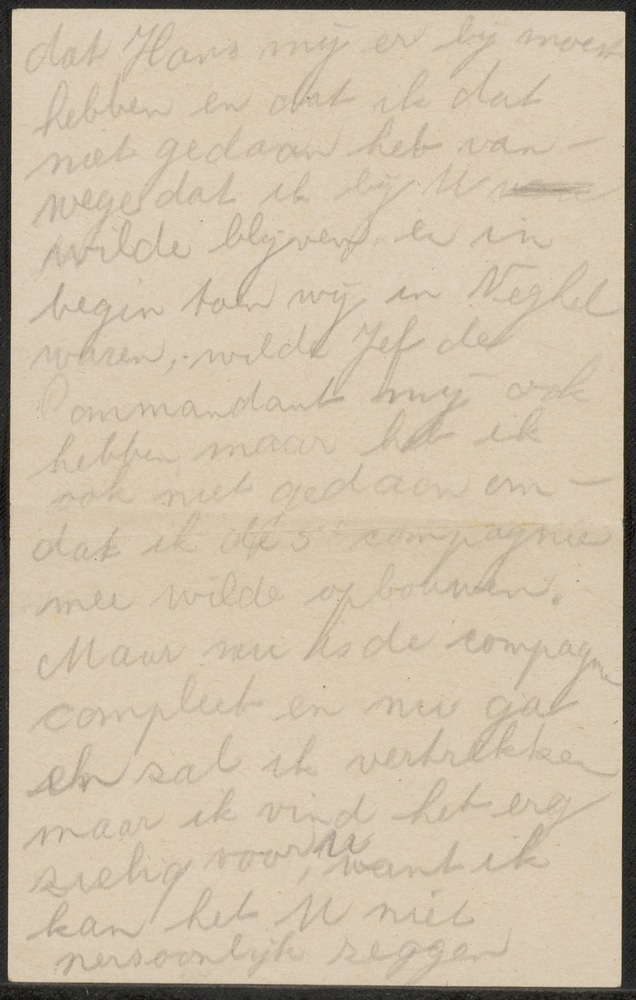 dat Hans mij er bij moest
hebben en dat ik dat
niet gedaan heb van-
wege dat ik bij U
wilde blijven. en in
begin toen wij in Veghel
waren, wilde Jef de
Commandant mij ook
hebben maar heb ik
ook niet gedaan om-
dat ik de 5e compagnie
mee wilde opbouwen.
Maar nu is de compagnie
compleet en nu ga
en zal ik vertrekken
maar ik vind het erg
zielig voor U, want ik
kan het U niet
persoonlijk zeggen